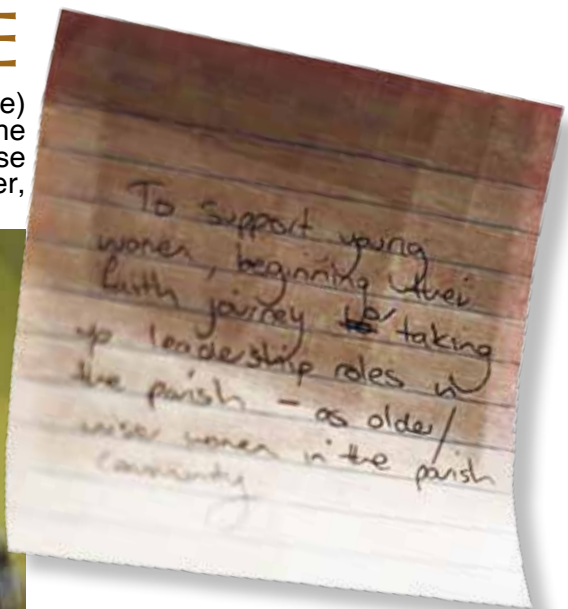 E
e)
ne
se
er,
To support young
women, beginning their
faith journey or taking
up leadership roles in
the parish – as older/
wiser women in the parish
community